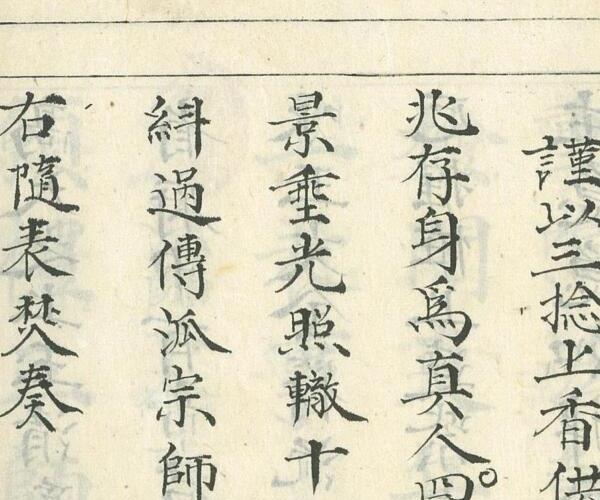 謹以三捻上香供
兆存身爲真人
景垂光照轍十
紏過傳泒宗師
右隨表焚奏